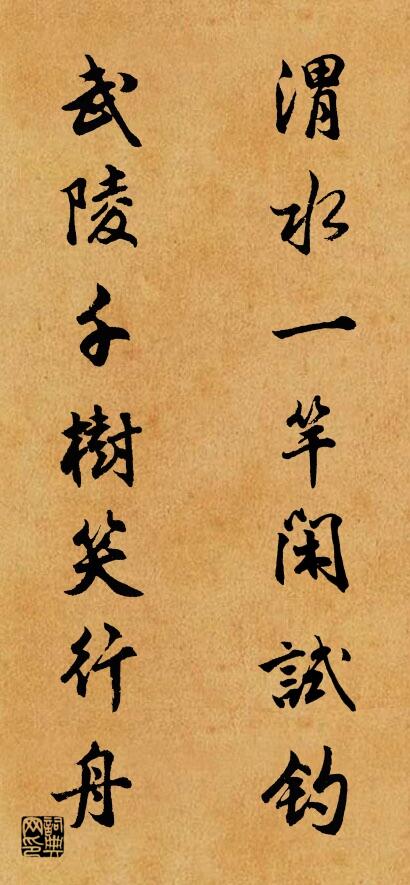 渭水一竿閑試釣
武陵千樹笑行舟
詞典網印